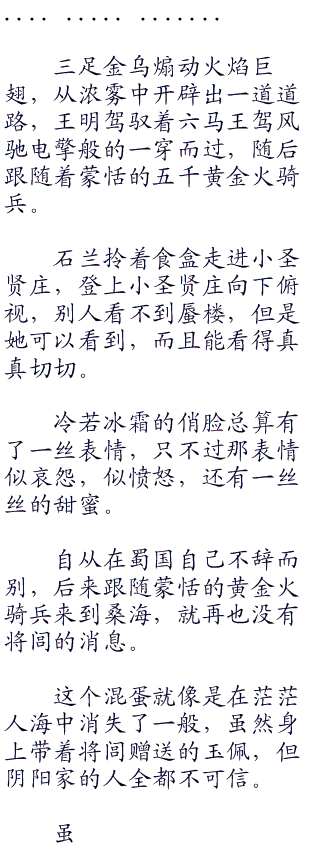 .... ..... .......
三足金乌煽动火焰巨
翅，从浓雾中开辟出一道道
路，王明驾驭着六马王驾风
驰电擎般的一穿而过，随后
跟随着蒙恬的五千黄金火骑
兵。
石兰拎着食盒走进小圣
贤庄，登上小圣贤庄向下俯
视，别人看不到蜃楼，但是
她可以看到，而且能看得真
真切切。
冷若冰霜的俏脸总算有
了一丝表情，只不过那表情
似哀怨，似愤怒，还有一丝
丝的甜蜜。
自从在蜀国自己不辞而
别，后来跟随蒙恬的黄金火
骑兵来到桑海，就再也没有
将闾的消息。
这个混蛋就像是在茫茫
人海中消失了一般，虽然身
上带着将闾赠送的玉佩，但
阴阳家的人全都不可信。
虽